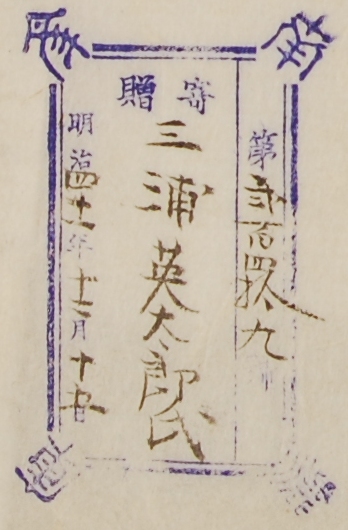 第弐百四拾九
寄贈
三浦英太郎氏
明治四十一年十二月十五日